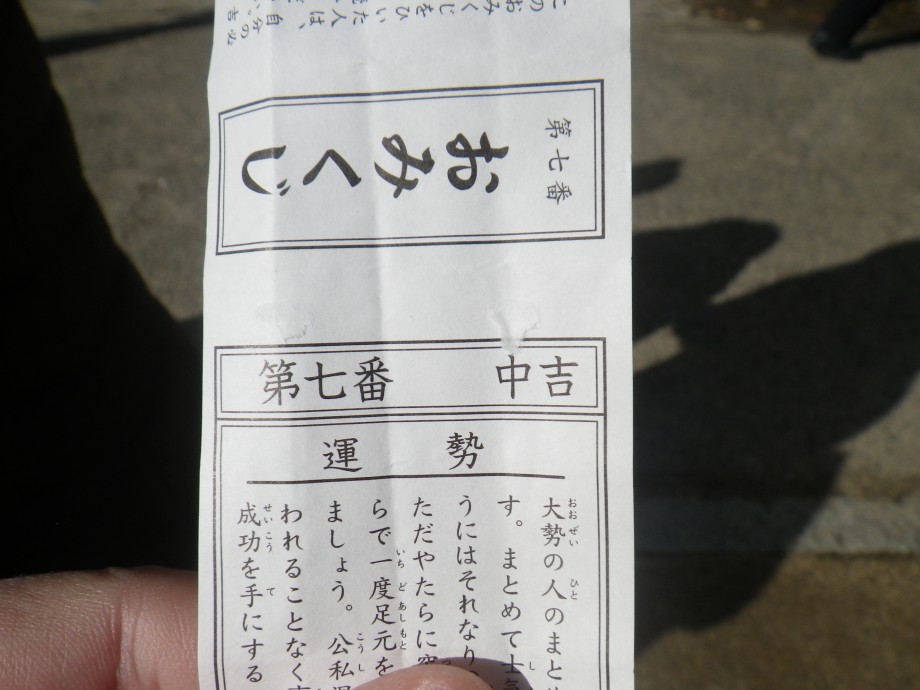 このおみくじをひ
いた人は、
自分の
吉
第七番
おみくじ
第七番 中吉
運勢
大勢の人のまと
す。まとめて士
うにはそれなり
ただやたらに
らで一度足元を
ましょう。公私
われることなく
成功を手にする